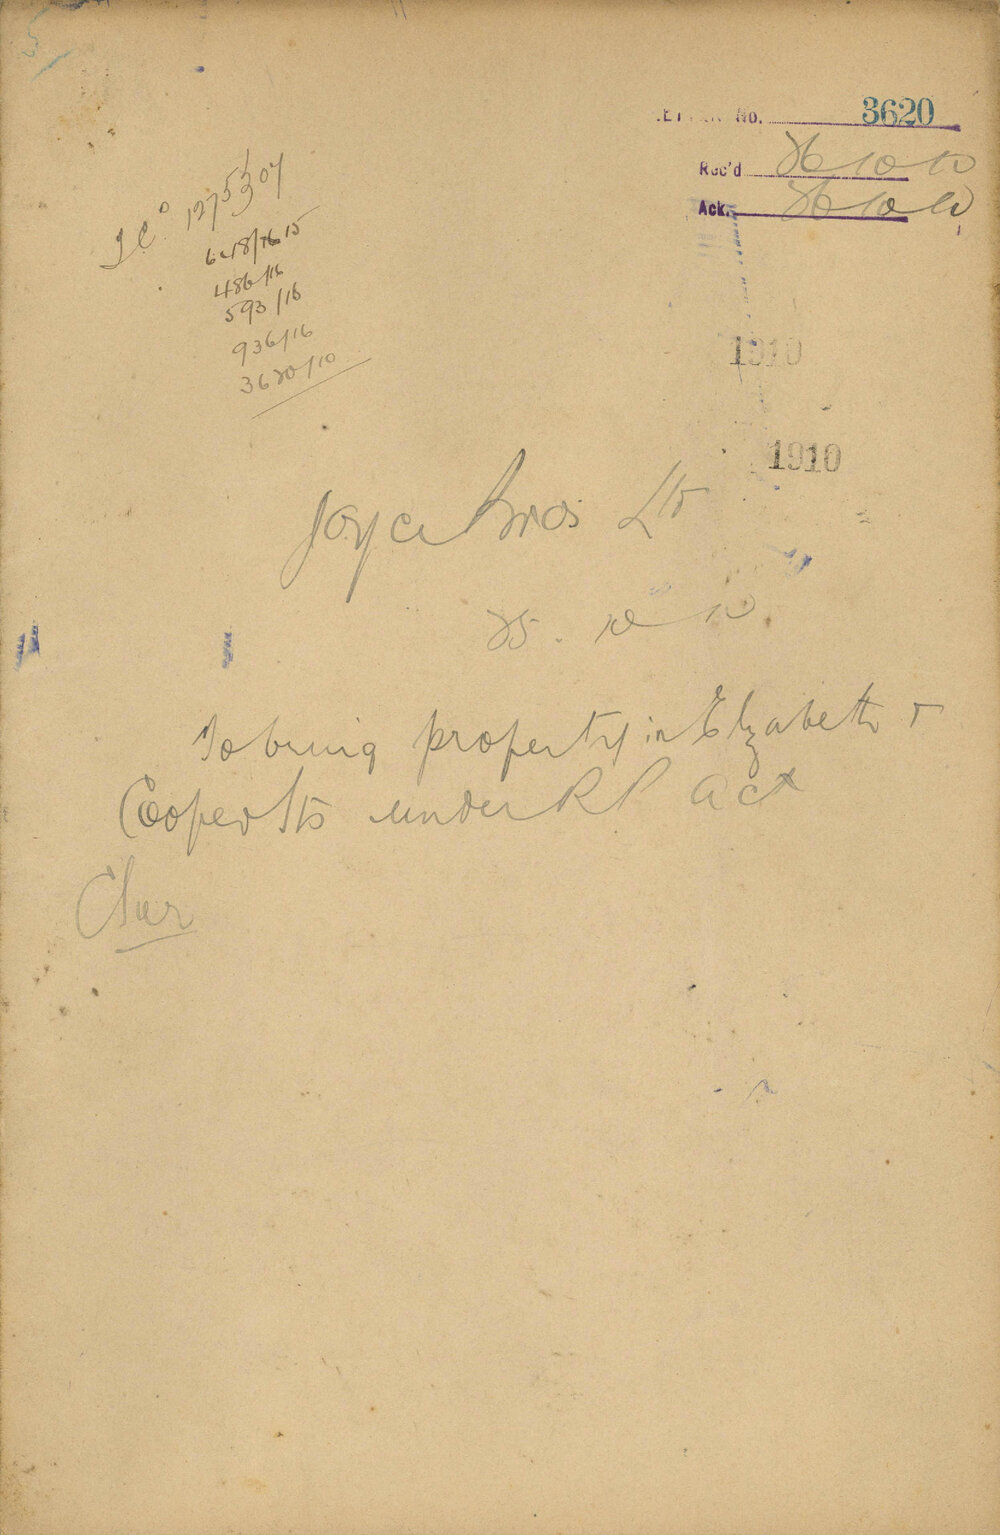 LETTER No. 3620
Rec'd 26 10 10
Ack. 26 10 10
648/16 15
486/16
593/16
936/16
3620/10
1910
1910
Joyce Bros Ltd
25. 10 10
To bring property in Elizabeth &
Cooper Sts under RP Act